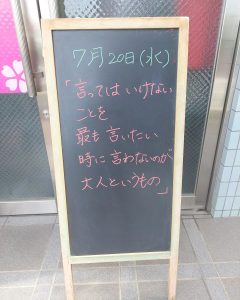 7月20日(水)
「言ってはいけない
ことを
最も言いたい
時に言わないのが
大人というもの」